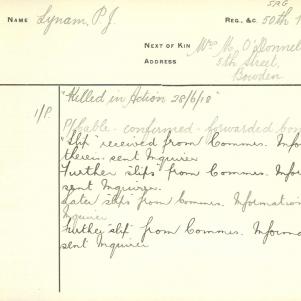 SRG
NAME Lynam, P.J. REG. &c 50th
NEXT OF KIN Mrs M. O'Donnel
ADDRESS 5th Street,
Bowden
"Killed in Action 28/6/18"
I/P. P/Cable - confirmed - forwarded Com
"Slip" received from Commrs. Infor
therein sent Inquirer
Further slips from Commrs. Info
sent Inquirer.
Later slips from Commrs. Information
Inquirer
Further slip from Commrs. Informa
sent Inquirer